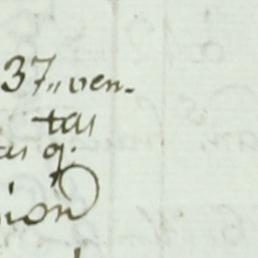 37,, ven-
tas
as q.
ion